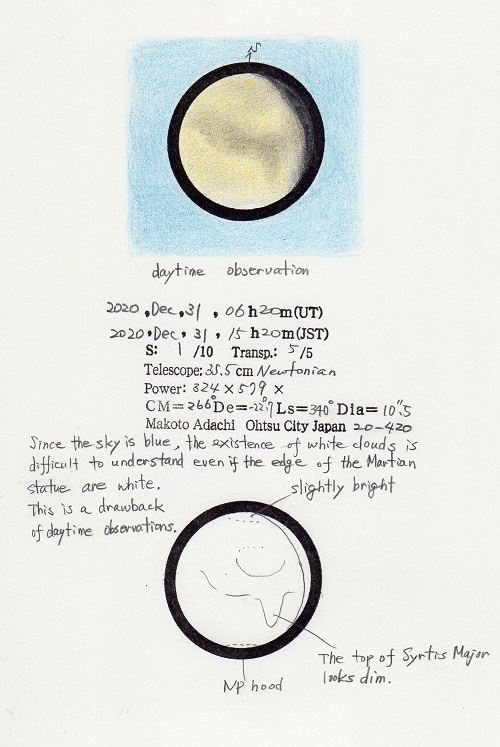 S
daytime observation
2020, Dec, 31, 06h20m(UT)
2020, Dec, 31, 15h20m(JST)
S: 1 /10 Transp.: 5/5
Telescope: 35.5cm Newtonian
Power: 324×579×
CM=266° De=-22°.7 Ls=340° Dia=10".5
Makoto Adachi Ohtsu City Japan 20-420
Since the sky is blue, the existence of white clouds is
difficult to understand even if the edge of the Martian
statue are white.
This is a drawback
of daytime observations.
slightly bright
The top of Syrtis Major
looks dim.
NP hood